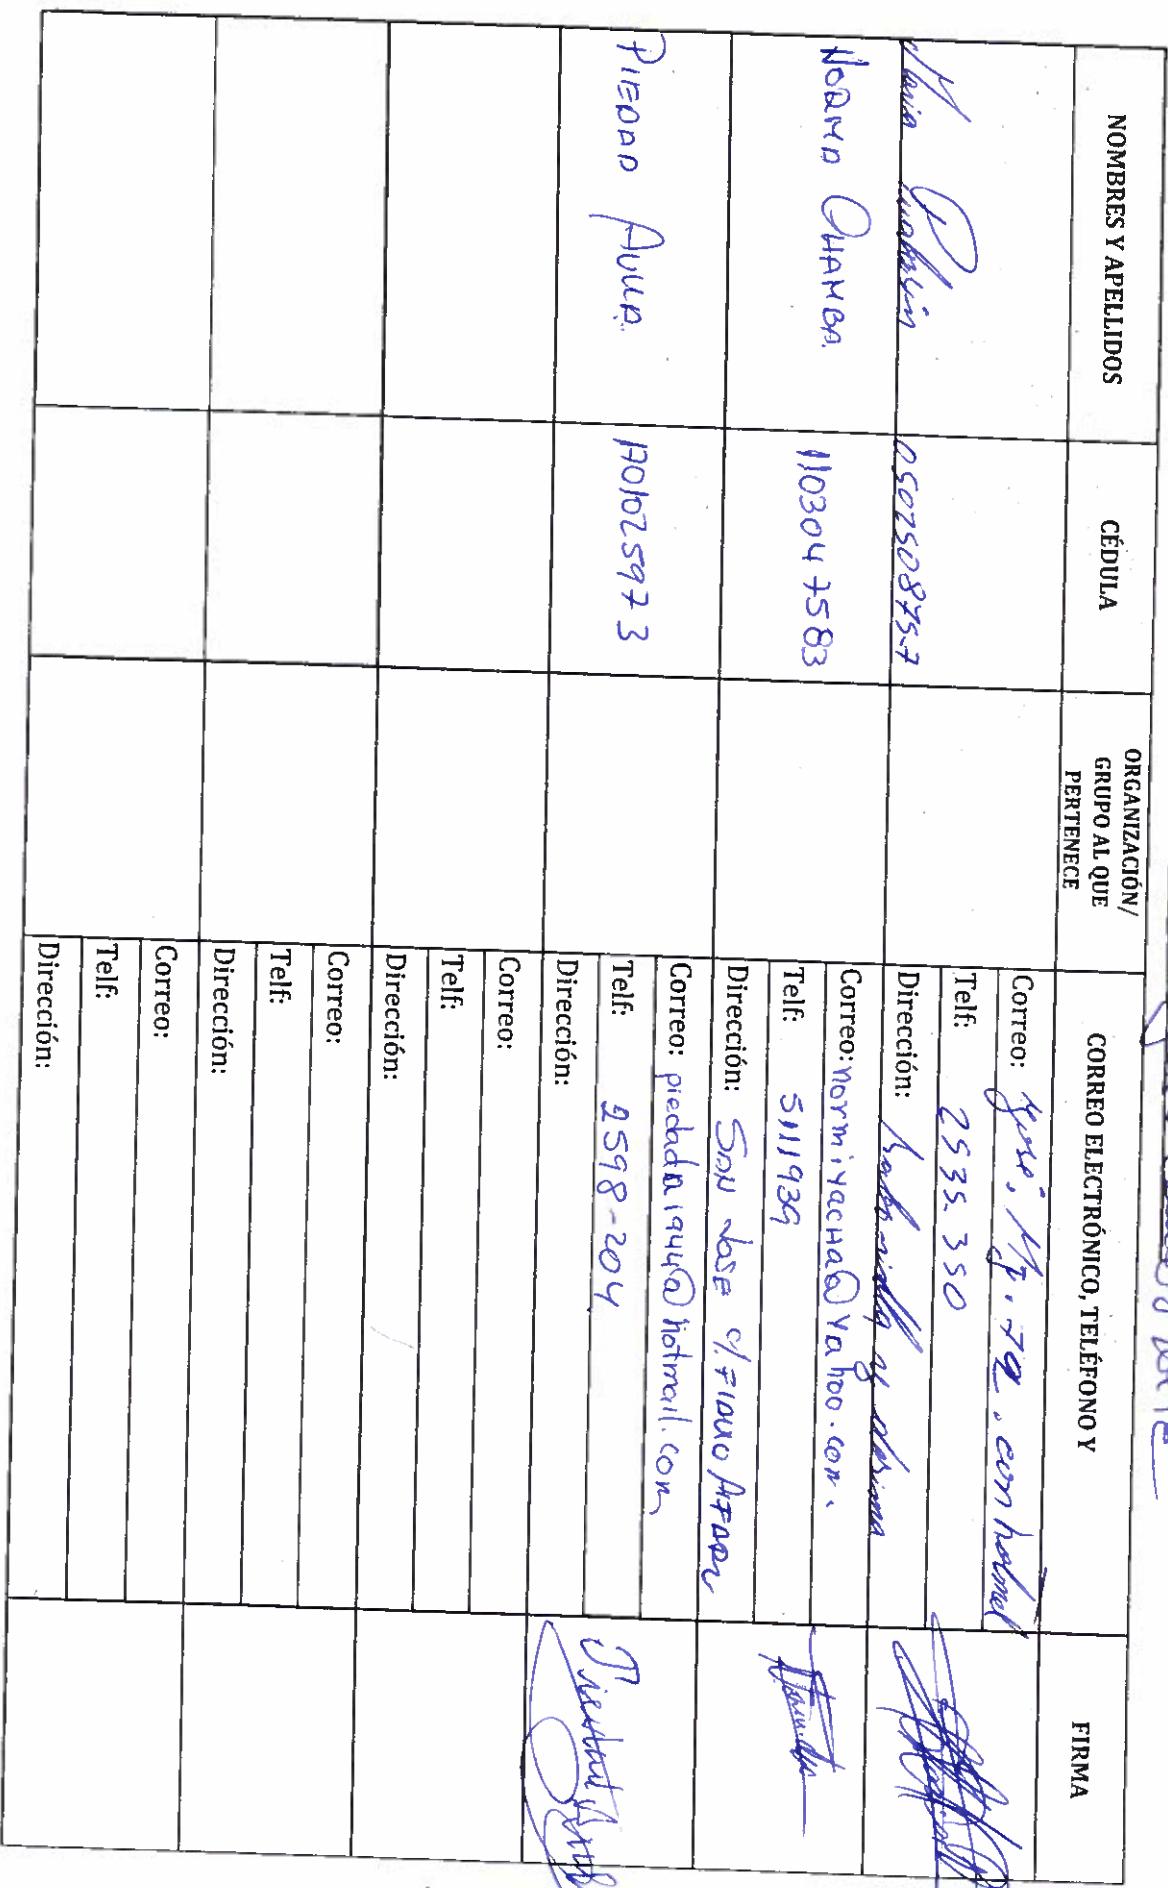 NOMBRES Y APELLIDOS
CÉDULA
ORGANIZACIÓN/
GRUPO AL QUE
PERTENECE
CORREO ELECTRÓNICO, TELÉFONO Y
FIRMA
Maria
050250875-7
Correo:
Telf: 2535-350
Dirección: y
NORMA CHAMBA
1103047583
Correo: normiyacha@yahoo.com.
Telf: 5111939
Dirección: SAN JOSE
PIEDAD AVILA
170102597 3
Correo: piedada1944@hotmail.com
Telf: 2598-204
Dirección:
Correo:
Telf:
Dirección:
Correo:
Telf:
Dirección:
Correo:
Telf:
Dirección: